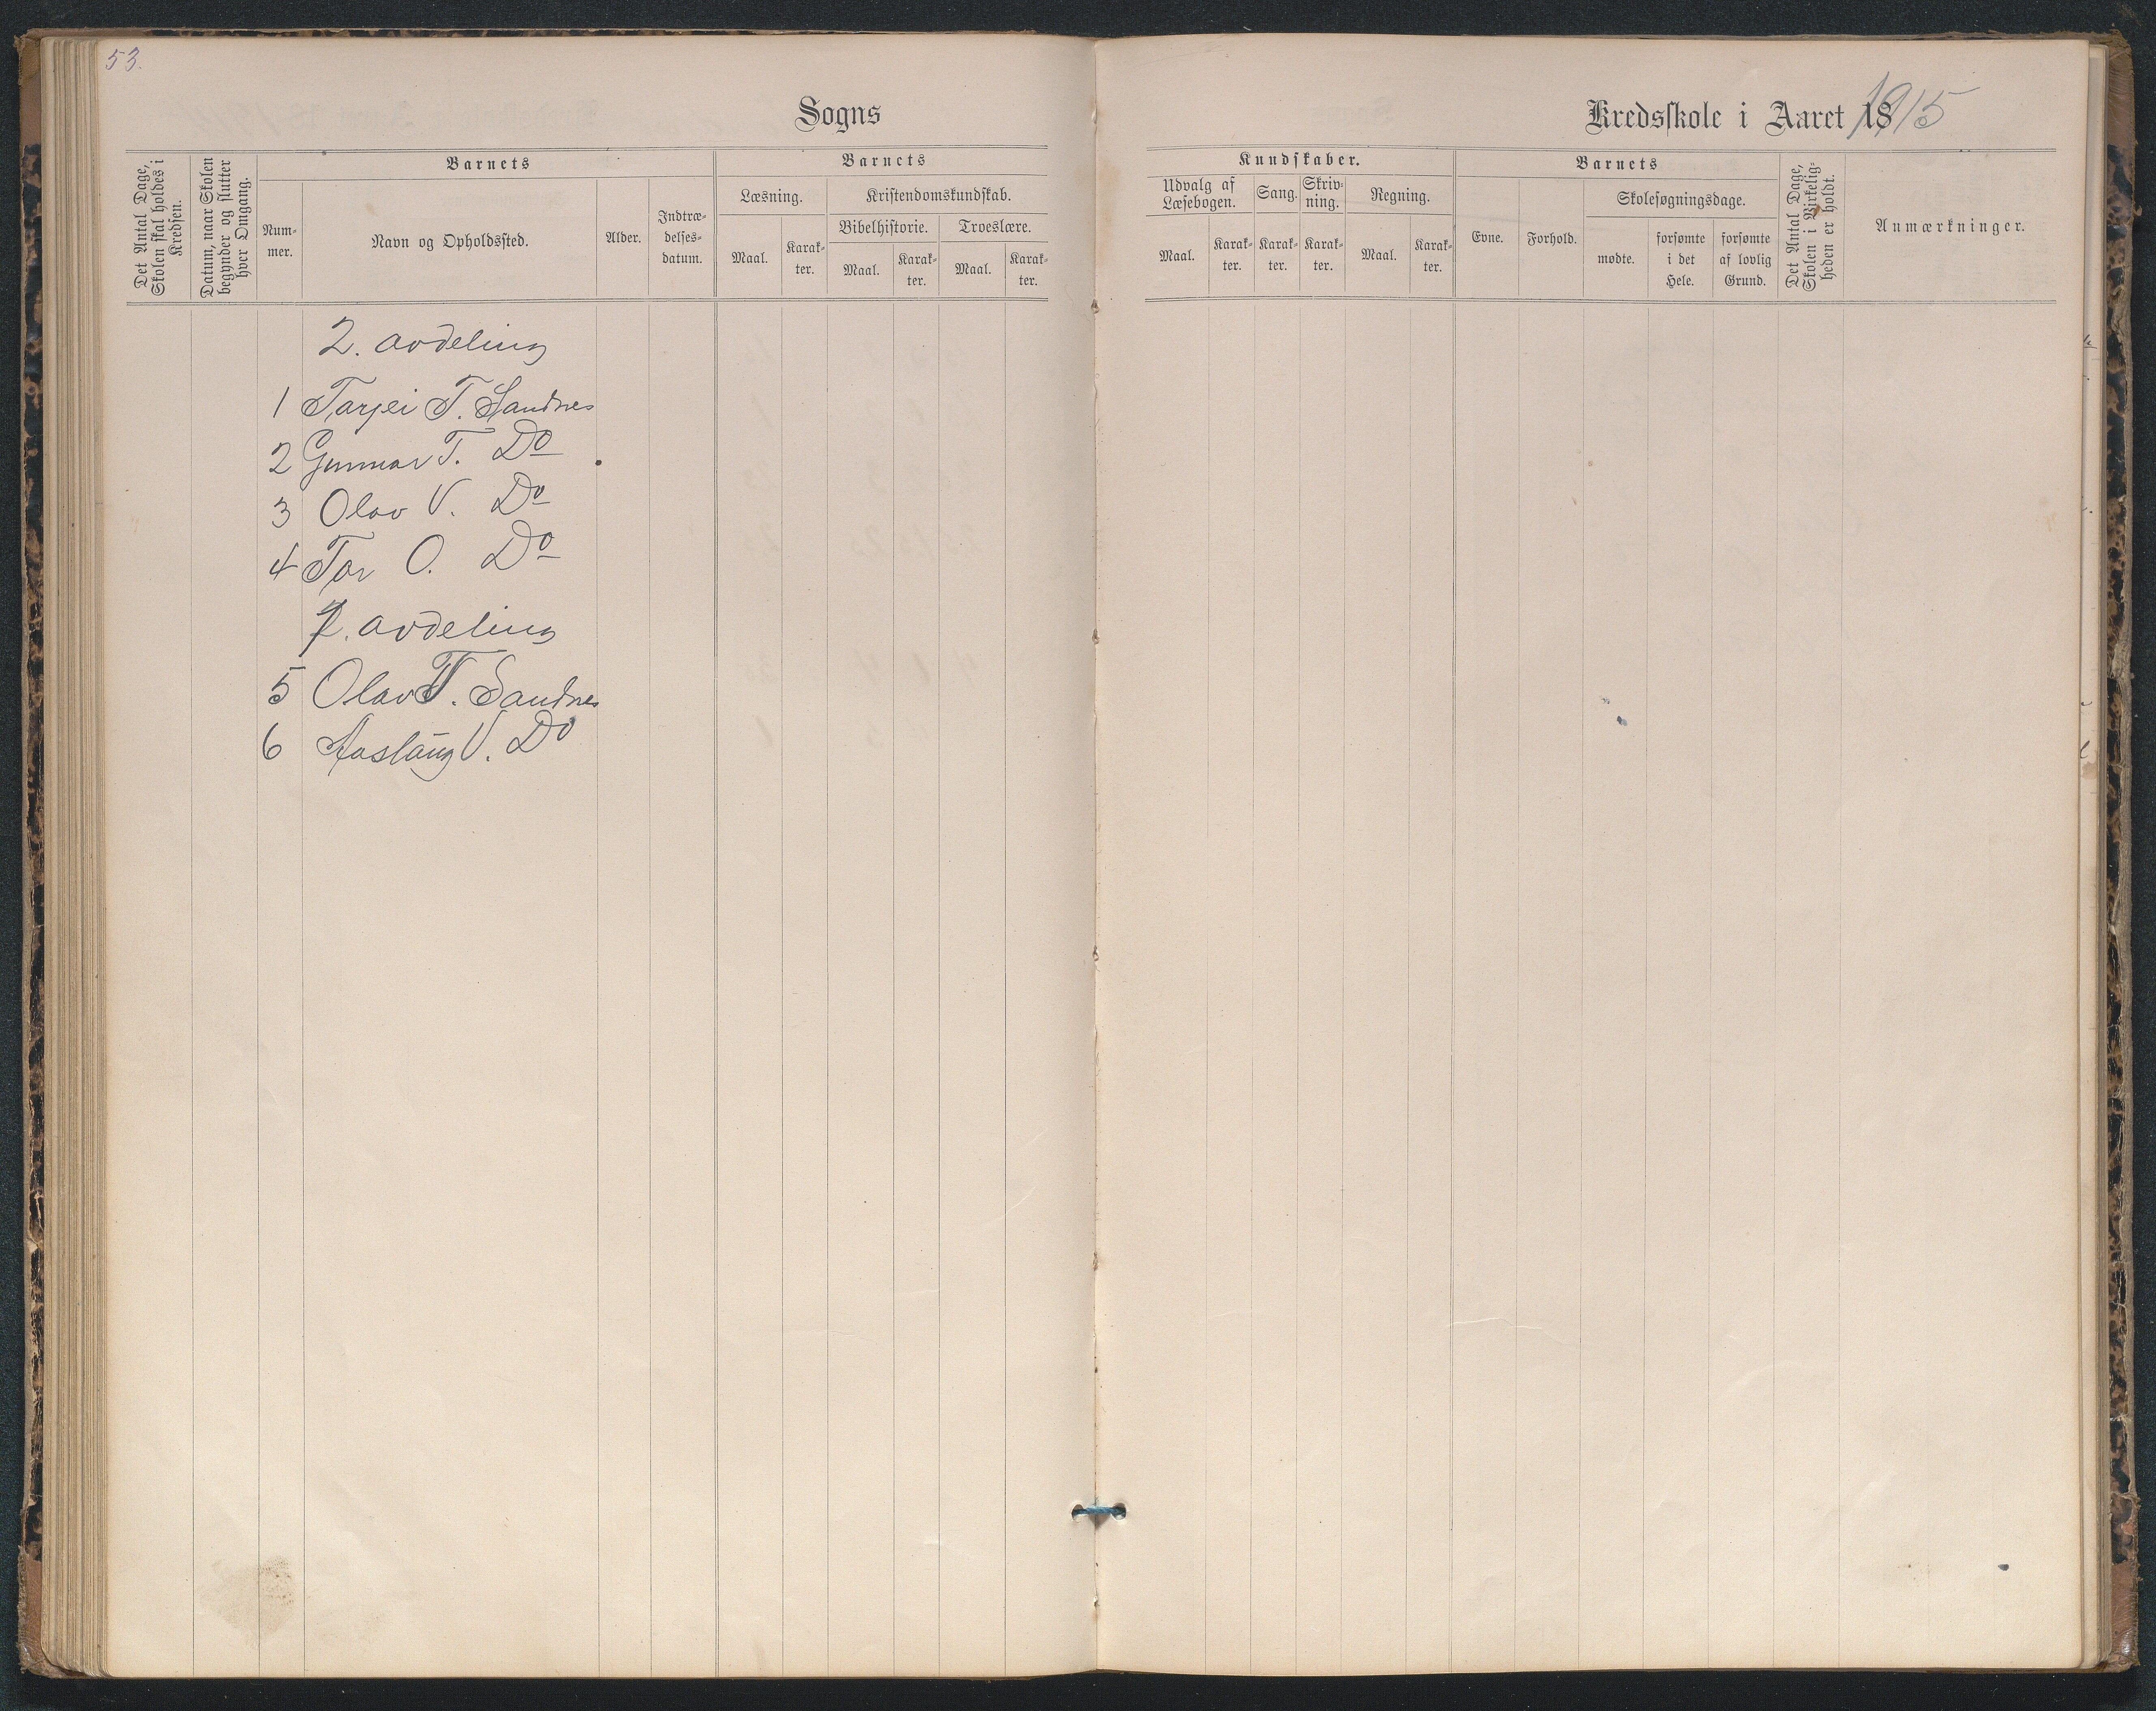 53.
Sogns
Kredsskole i Aaret 1915
Det Antal Dage, Skolen skal holdes i Kredsen.
Datum, naar Skolen begynder og slutter hver Omgang.
Barnets
Nummer.
Navn og Opholdssted.
Alder.
Indtrædelsesdatum.
Barnets
Læsning.
Maal.
Karakter.
Kristendomskundskab.
Bibelhistorie.
Maal.
Karakter.
Troeslære.
Maal.
Karakter.
Kundskaber.
Udvalg af Læsebogen.
Maal.
Karakter.
Sang.
Karakter.
Skrivning.
Karakter.
Regning.
Maal.
Karakter.
Barnets
Evne.
Forhold.
Skolesøgningsdage.
mødte.
forsømte i det Hele.
forsømte af lovlig Grund.
Det Antal Dage, Skolen i Virkeligheden er holdt.
Anmærkninger.
2. avdeling
1 Tarjei T. Sandnes
2 Gunnar T. Do
3 Olav V. Do
4 Tor O. Do
1. avdeling
5 Olav T. Sandnes
6 Aaslaug V. Do